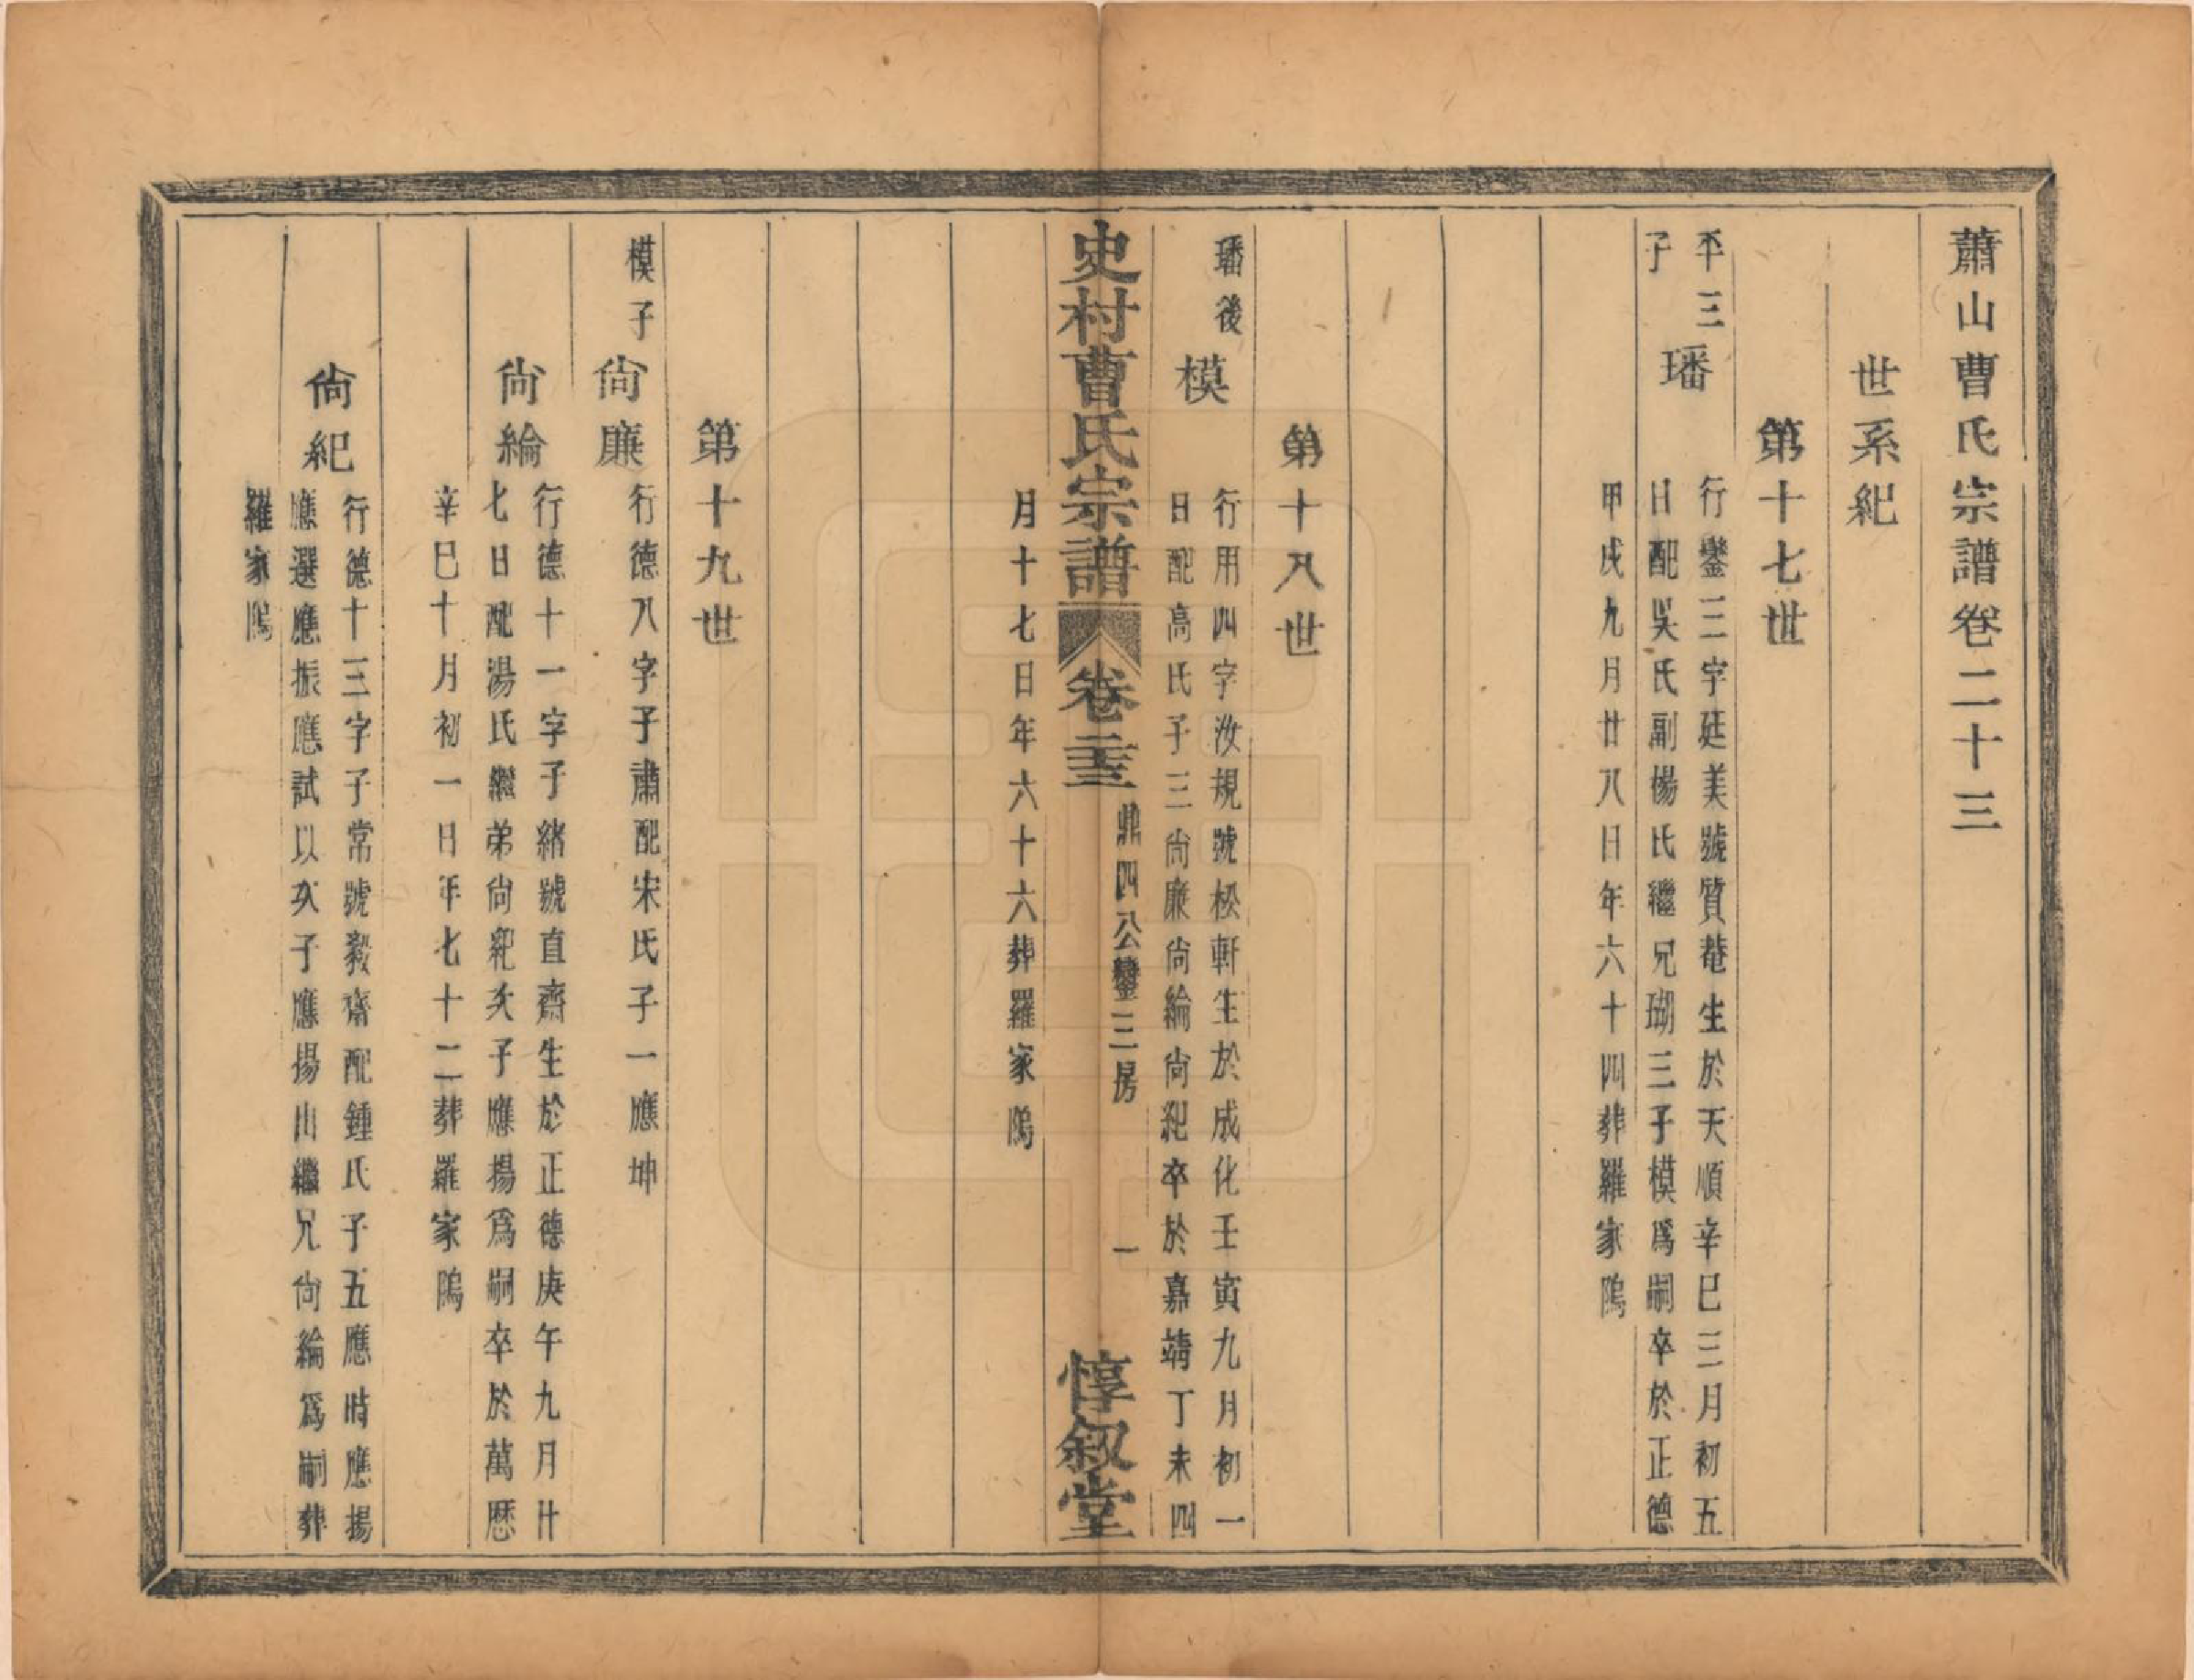 蕭山曹氏宗譜卷二十三
世系紀
第十七世
平三
子
璠
行鑾三字廷美號質菴生於天順辛巳三月初五
日配吳氏副楊氏繼兄瑚三子模爲嗣卒於正德
甲戌九月廿八日年六十四葬羅家隖
第十八世
璠後
模
行用四字汝規號松軒生於成化壬寅九月初一
日配高氏子三尙廉尙綸尙紀卒於嘉靖丁未四
月十七日年六十六葬羅家隖
史村曹氏宗譜
卷二十三
鼎四公鑾三房
一
惇叙堂
第十九世
模子
尙廉
行德八字子肅配宋氏子一應坤
尙綸
行德十一字子綹號直齋生於正德庚午九月廿
七日配湯氏繼弟尙紀次子應揚爲嗣卒於萬歷
辛巳十月初一日年七十二葬羅家隖
尙紀
行德十三字子常號毅齋配鍾氏子五應時應揚
應選應振應試以次子應揚出繼兄尙綸爲嗣葬
羅家隖